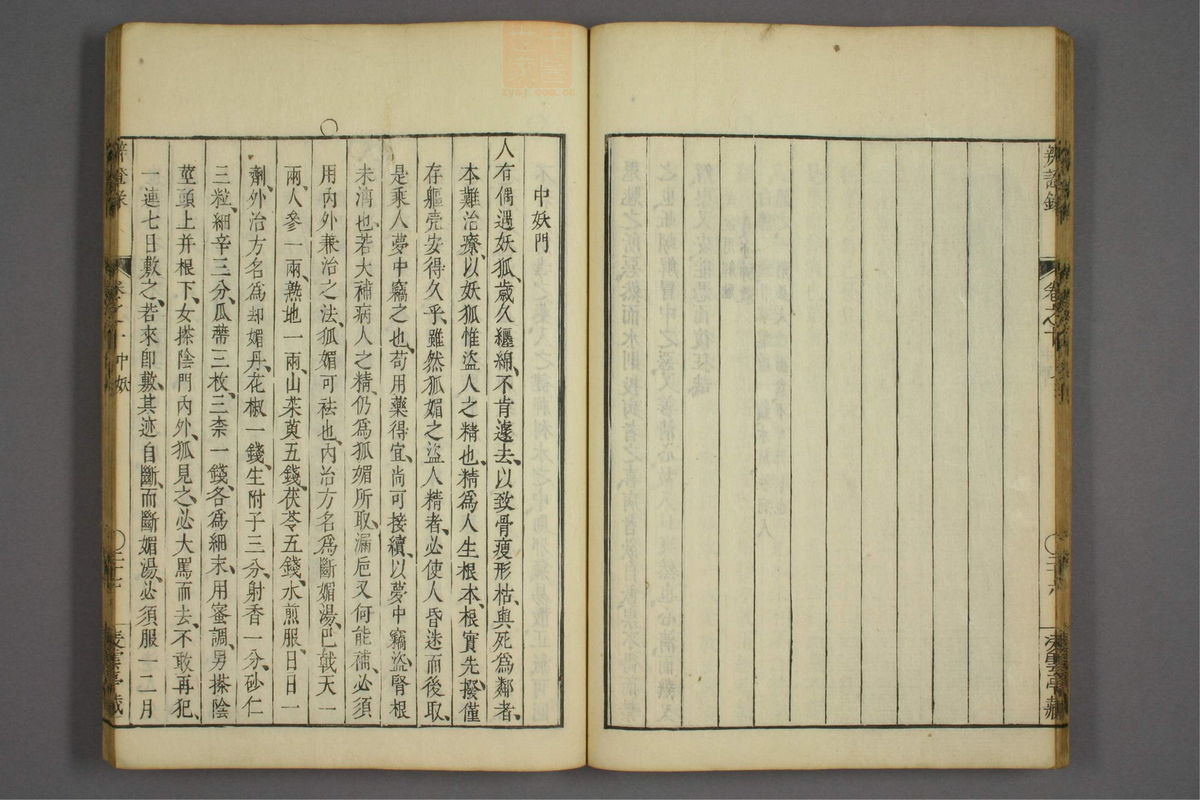 辨證錄
卷之十
凌雲亭藏
中妖門
人有偶遇妖狐歲久纏綿不肯遽去以致骨瘦形枯與死爲鄰者
本難治療以妖狐惟盜人之精也精爲人生根本根實先撥僅
存軀壳安得久乎雖然狐媚之盜人精者必使人昏迷而後取
是乘人夢中竊之也苟用藥得宜尚可接續以夢中竊盜腎根
未漓也若大補病人之精仍爲狐媚所取漏巵又何能補必須
用內外兼治之法狐媚可祛也內治方名爲斷媚湯巴戟天一
兩人參一兩熟地一兩山茱萸五錢茯苓五錢水煎服日日一
劑外治方名爲却媚丹花椒一錢生附子三分射香一分砂仁
三粒細辛三分瓜蒂三枚三柰一錢各爲細末用蜜調男搽陰
莖頭上并根下女搽陰門內外狐見之必大罵而去不敢再犯
一連七日敷之若來即敷其迹自斷而斷媚湯必須服一二月
辨證錄
卷之十 中妖